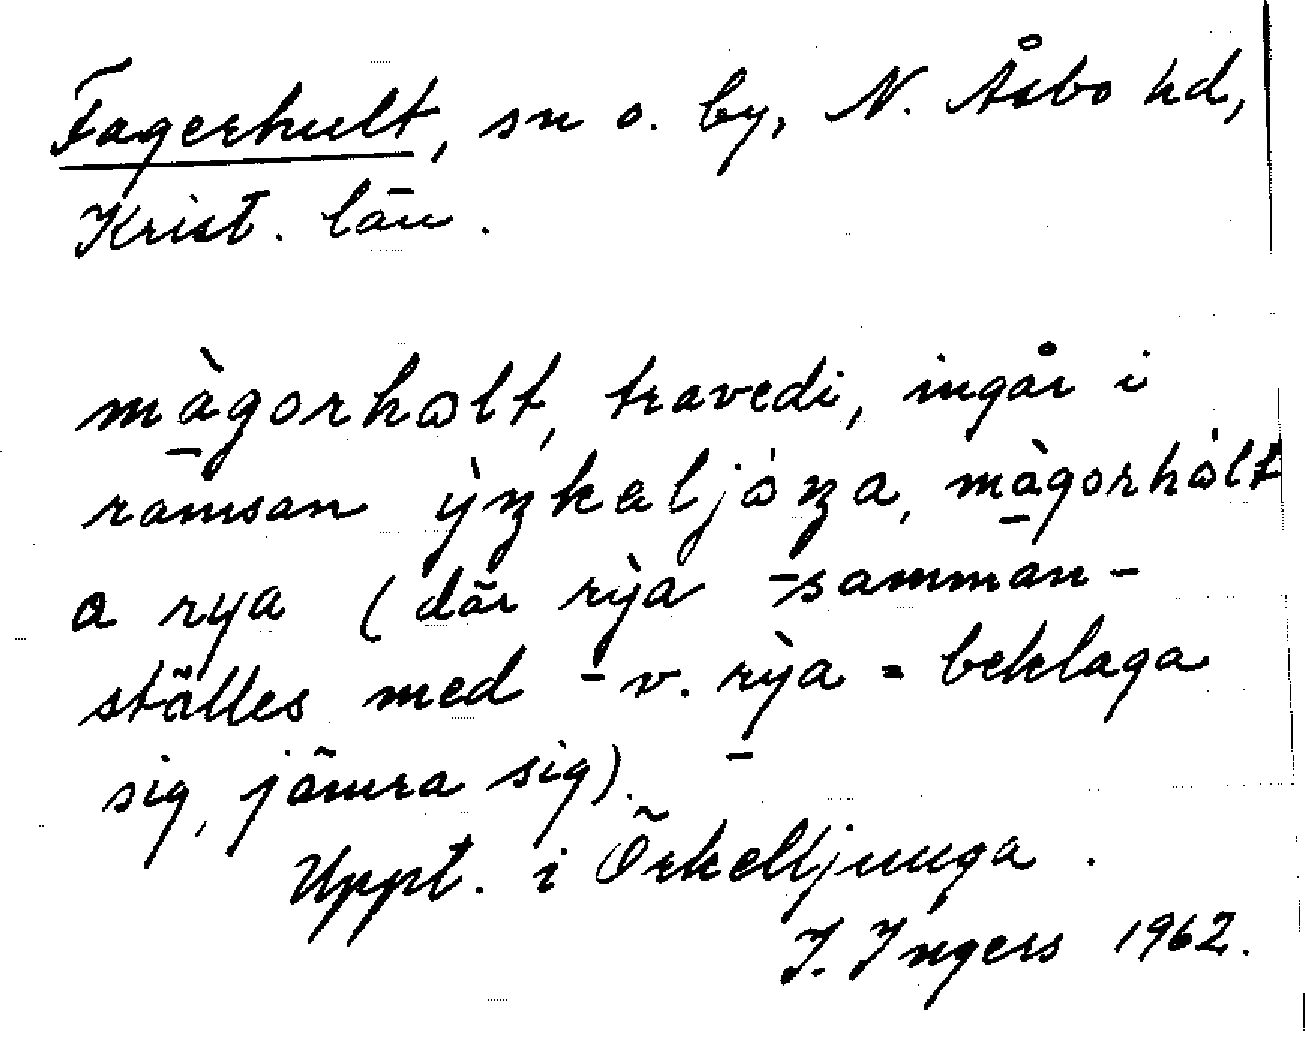 Fagerhult, sn o. by, N. Åsbo hd,
Krist. län.
màgorhɷlt, travedi, ingår i
ramsan ỳŋkaljɷŋa, màgorhɷlt
a rya (där rỳa samman-
ställes med v. rỳa = beklaga
sig, jämra sig).
Uppt. i Örkelljunga.
I. Ingers 1962.